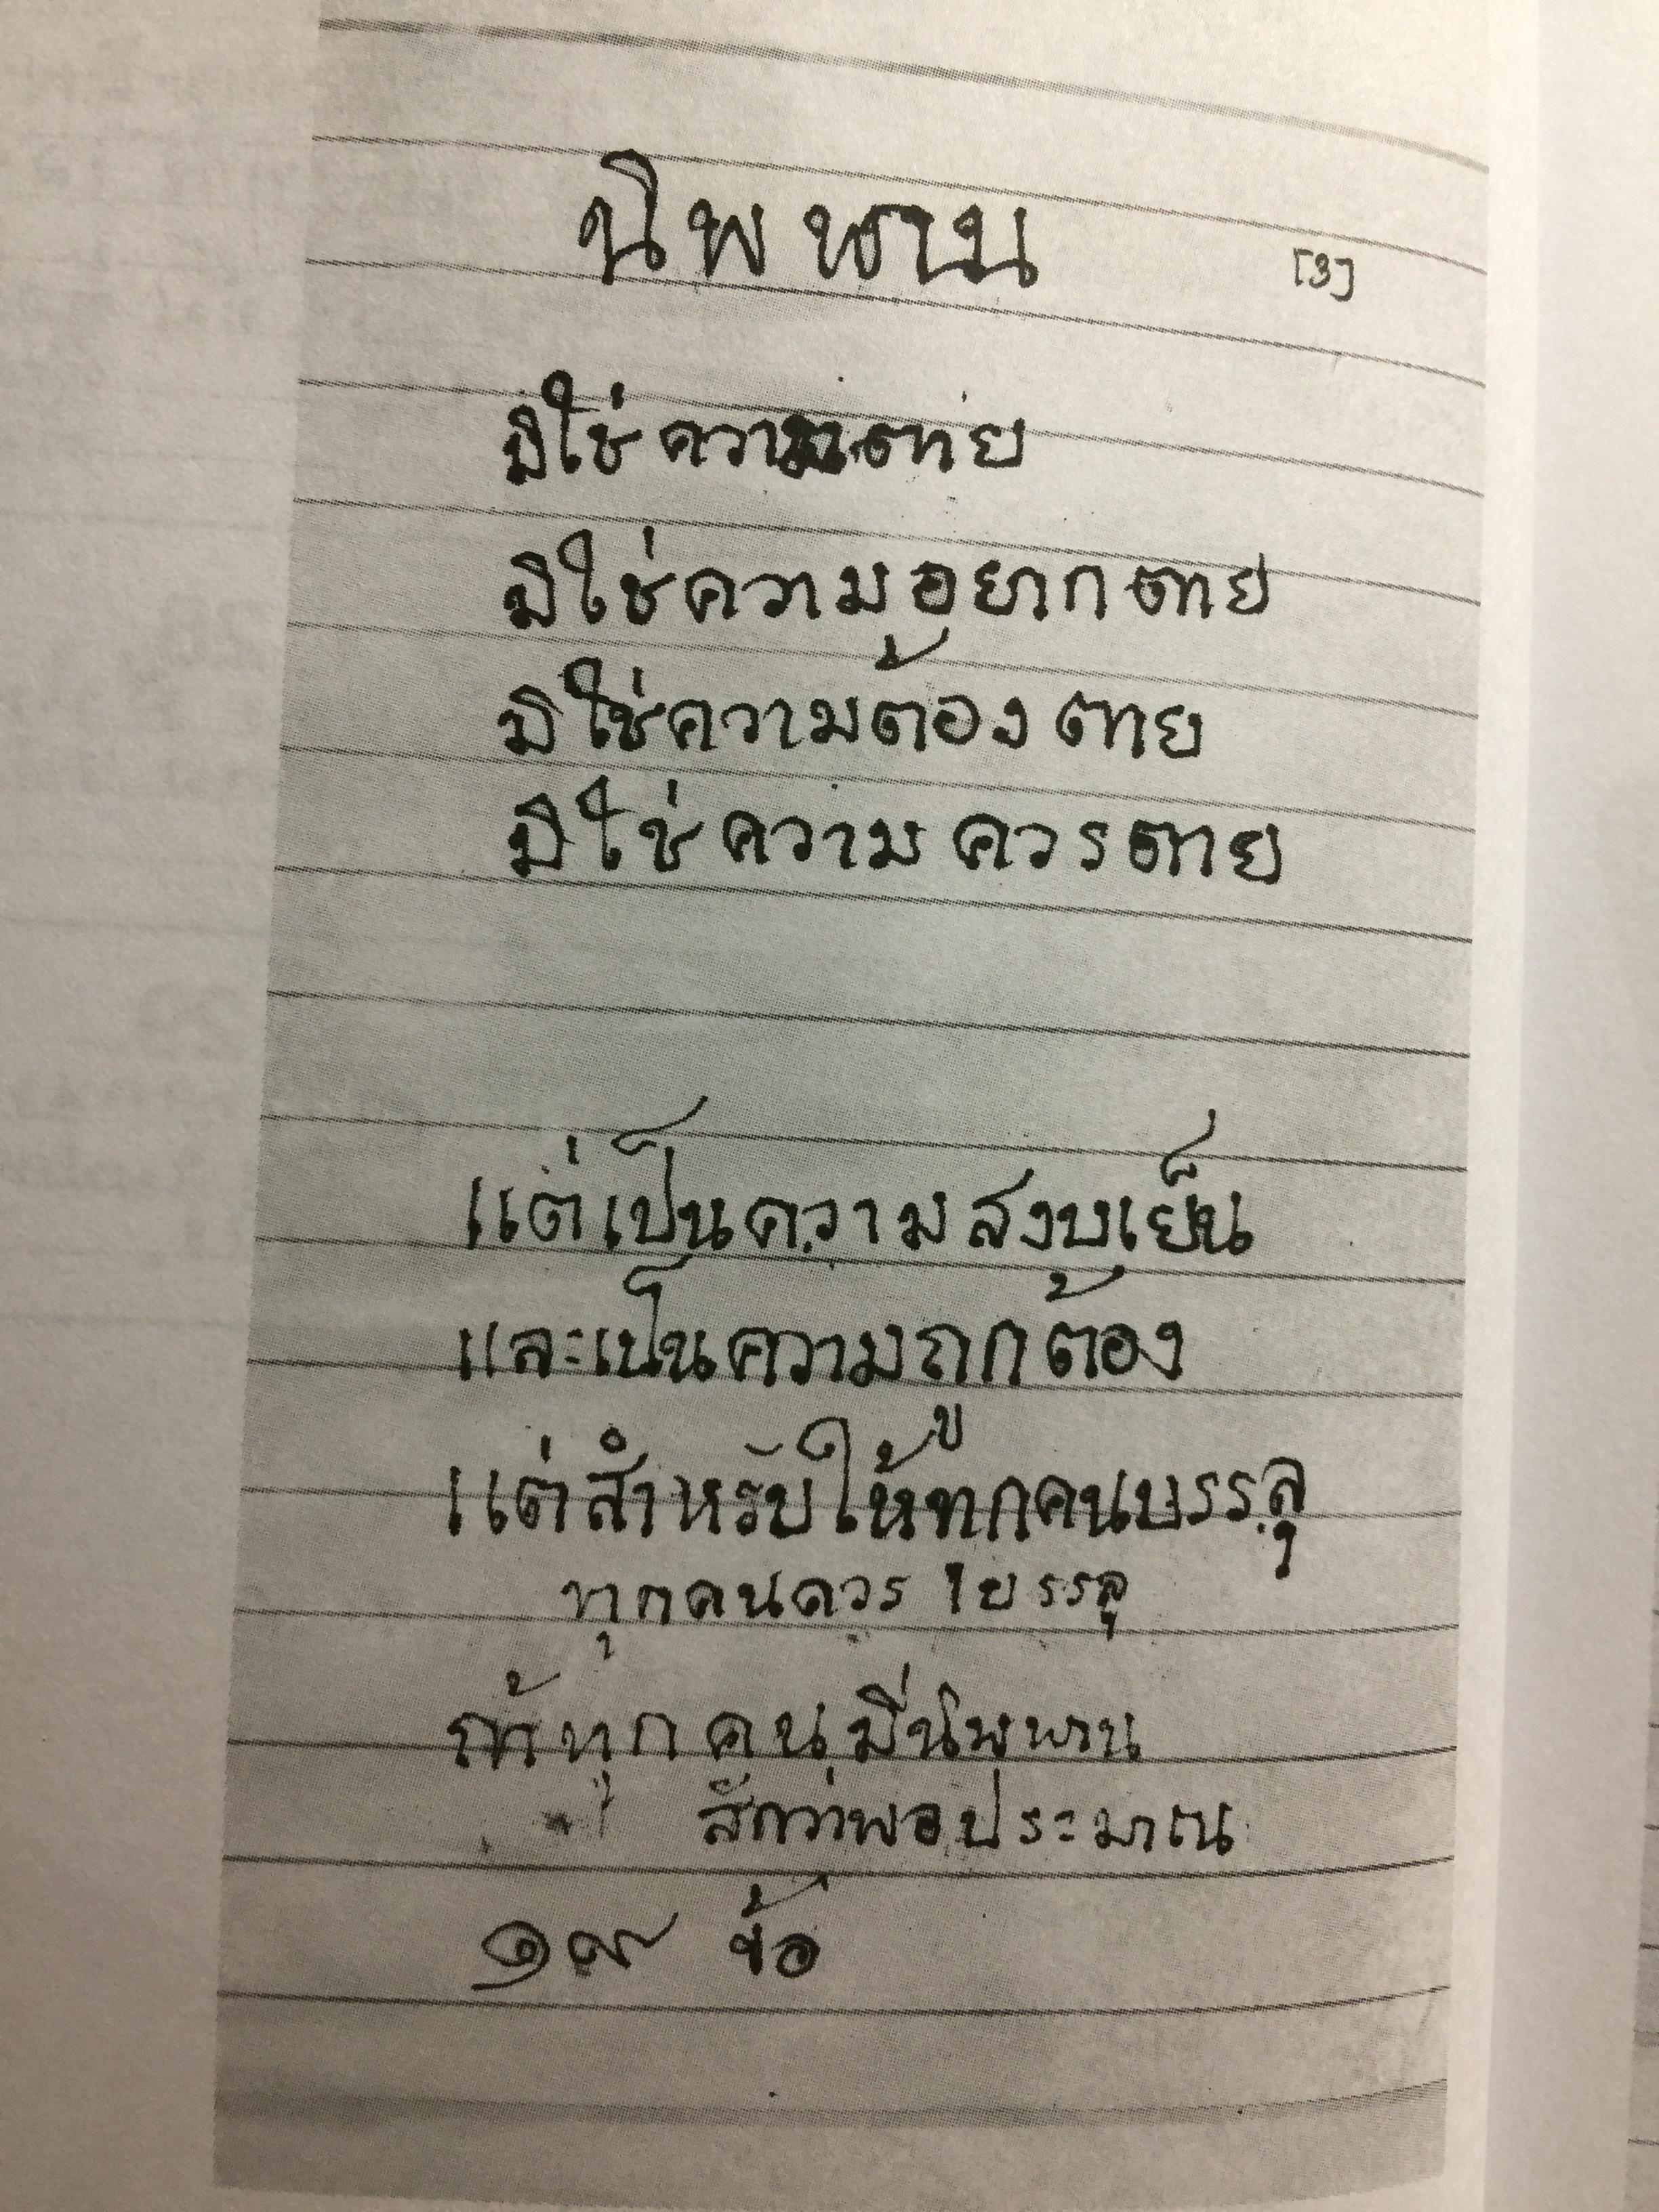 นิพพาน [3]
มิใช่ความตาย
มิใช่ความอยากตาย
มิใช่ความต้องตาย
มิใช่ความควรตาย
แต่เป็นความสงบเย็น
และเป็นความถูกต้อง
แต่สำหรับให้ทุกคนบรรลุ
ทุกคนควร บรรลุ
ถ้าทุกคนมีนิพพาน
สักว่าพอประมาณ
๑๙ ข้อ